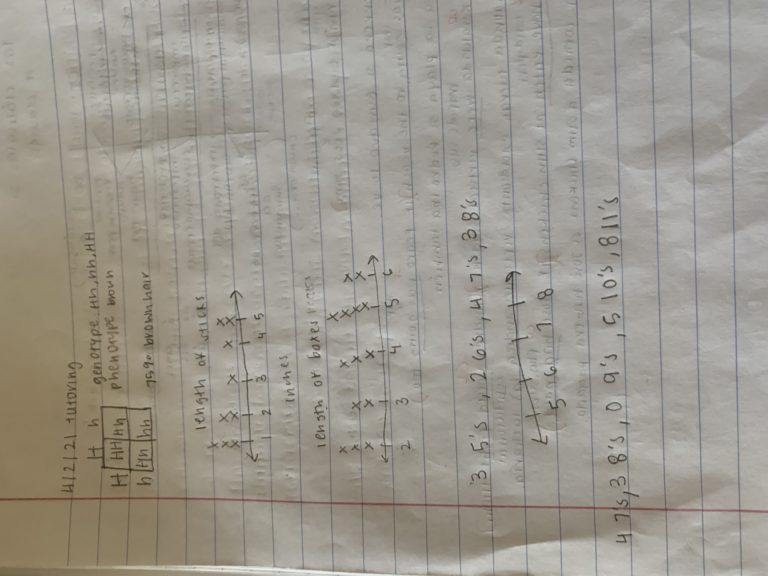 4/2/21 tutoring
H h genotype Hh, hh, HH
H HH Hh phenotype brown
h Hh hh 75% brown hair
length of sticks
x
x x x
x x x x x
1 2 3 4 5
inches
length of boxes
x x
x x x x x
x x x x x x
2 3 4 5 6
3 5's, 2 6's, 4 7's, 3 8's
5 6 7 8
4 7's, 3 8's, 0 9's, 5 10's, 8 11's